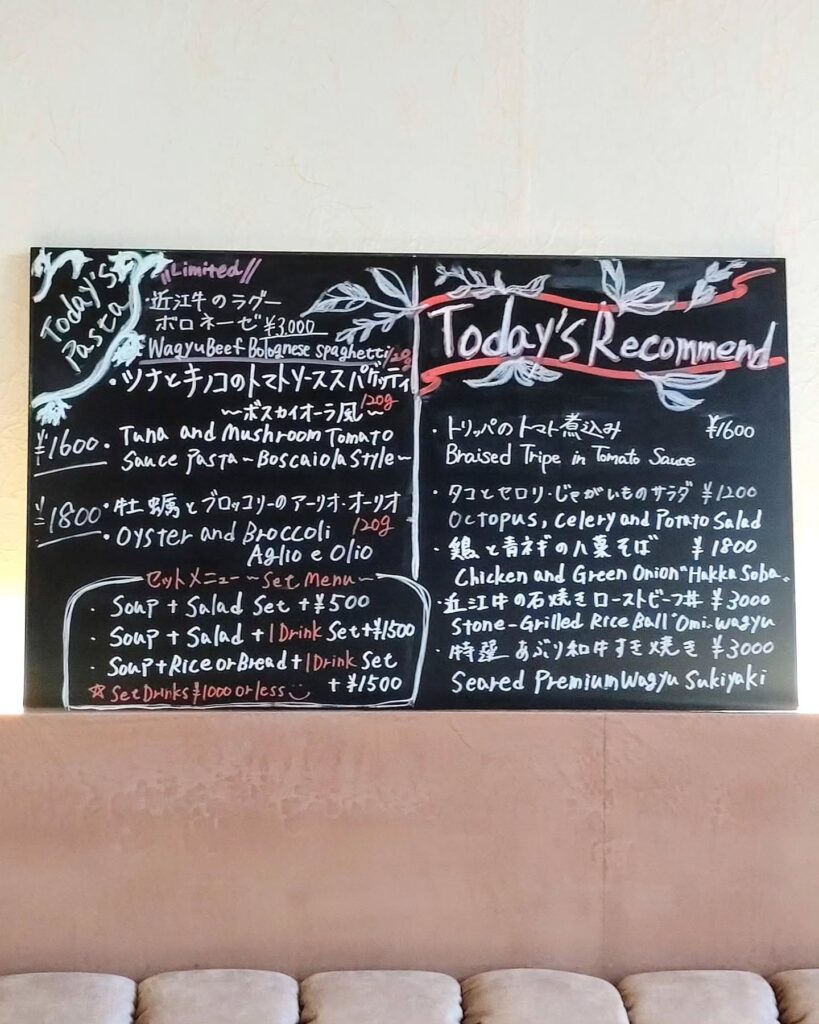 Today's
Pasta
Limited
・近江牛のラグー
ボロネーゼ ¥3,000
Wagyu Beef Bolognese spaghetti 120g
・ツナとキノコのトマトソーススパゲッティ
〜ボスカイオーラ風〜 120g
¥1600 ・Tuna and Mushroom Tomato
Sauce Pasta ~Boscaiola Style~
¥1800 ・牡蠣とブロッコリーのアーリオ・オーリオ
・Oyster and Broccoli 120g
Aglio e Olio
セットメニュー ~Set Menu~
・Soup + Salad Set +¥500
・Soup + Salad + 1 Drink Set +¥1500
・Soup + Rice or Bread + 1 Drink Set
+¥1500
☆Set Drinks ¥1000 or less
Today's Recommend
・トリッパのトマト煮込み ¥1600
Braised Tripe in Tomato Sauce
・タコとセロリ・じゃがいものサラダ ¥1200
Octopus, Celery and Potato Salad
・鶏と青ネギの八菓そば ¥1800
Chicken and Green Onion "Hakka Soba"
・近江牛の石焼きローストビーフ丼 ¥3000
Stone-Grilled Rice Ball "Omi-wagyu
・特選 あぶり和牛すき焼き ¥3000
Seared Premium Wagyu Sukiyaki